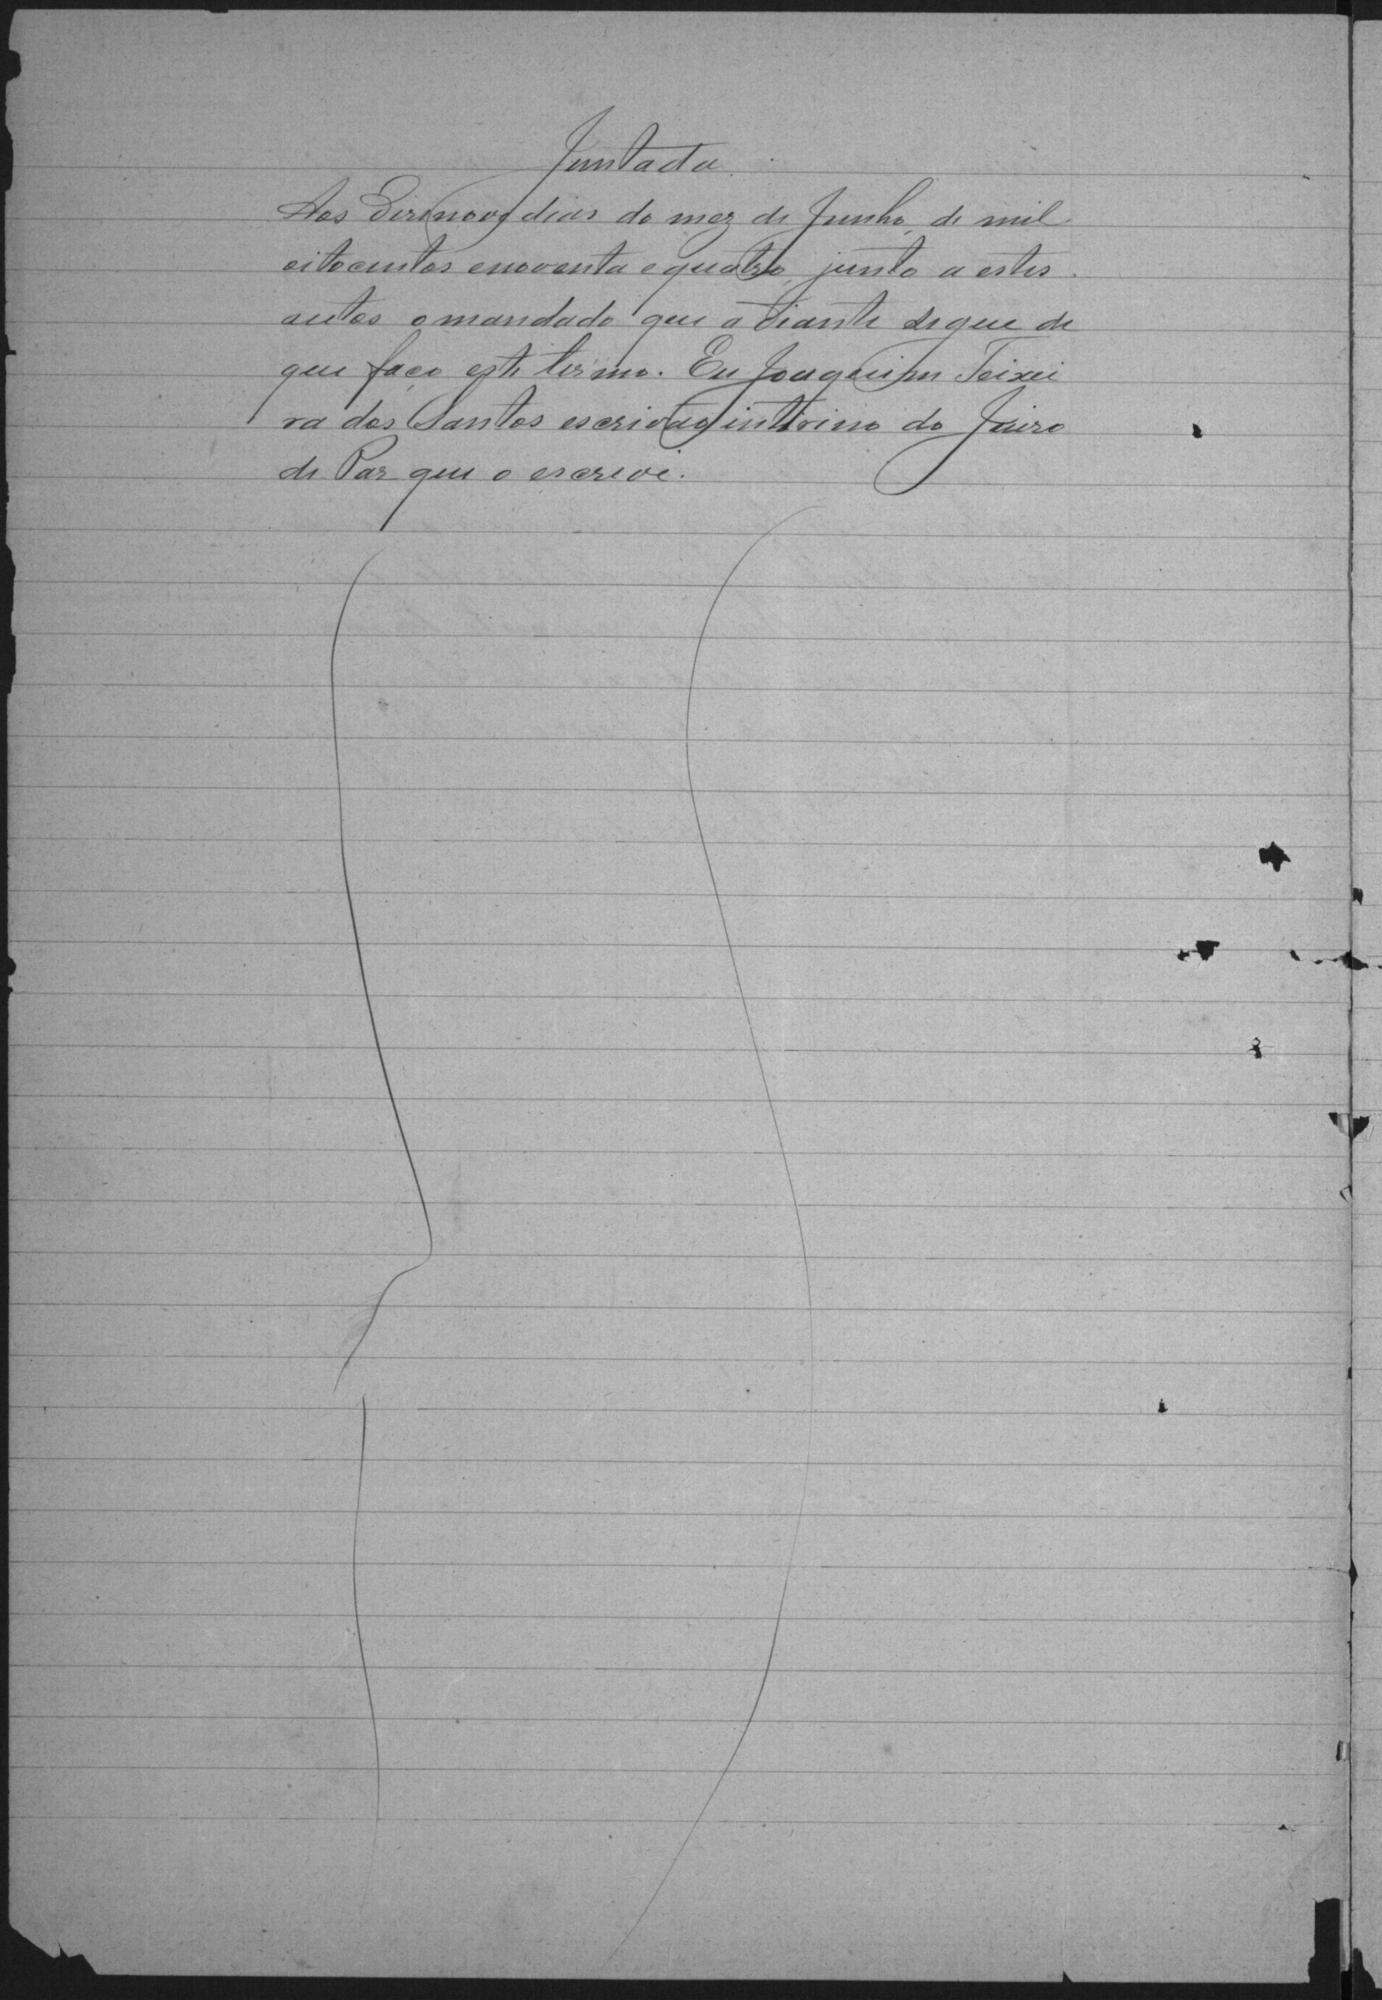 Juntada.
Aos Dezenove dias do mez de Junho, de mil
oitocentos enoventa equatro, junto a estes
autos omandado que adiante segue de
que faço este termo. Eu Joaquim Teixei
ra dos Santos escrivão interino do Juizo
de Paz que o escrevi.